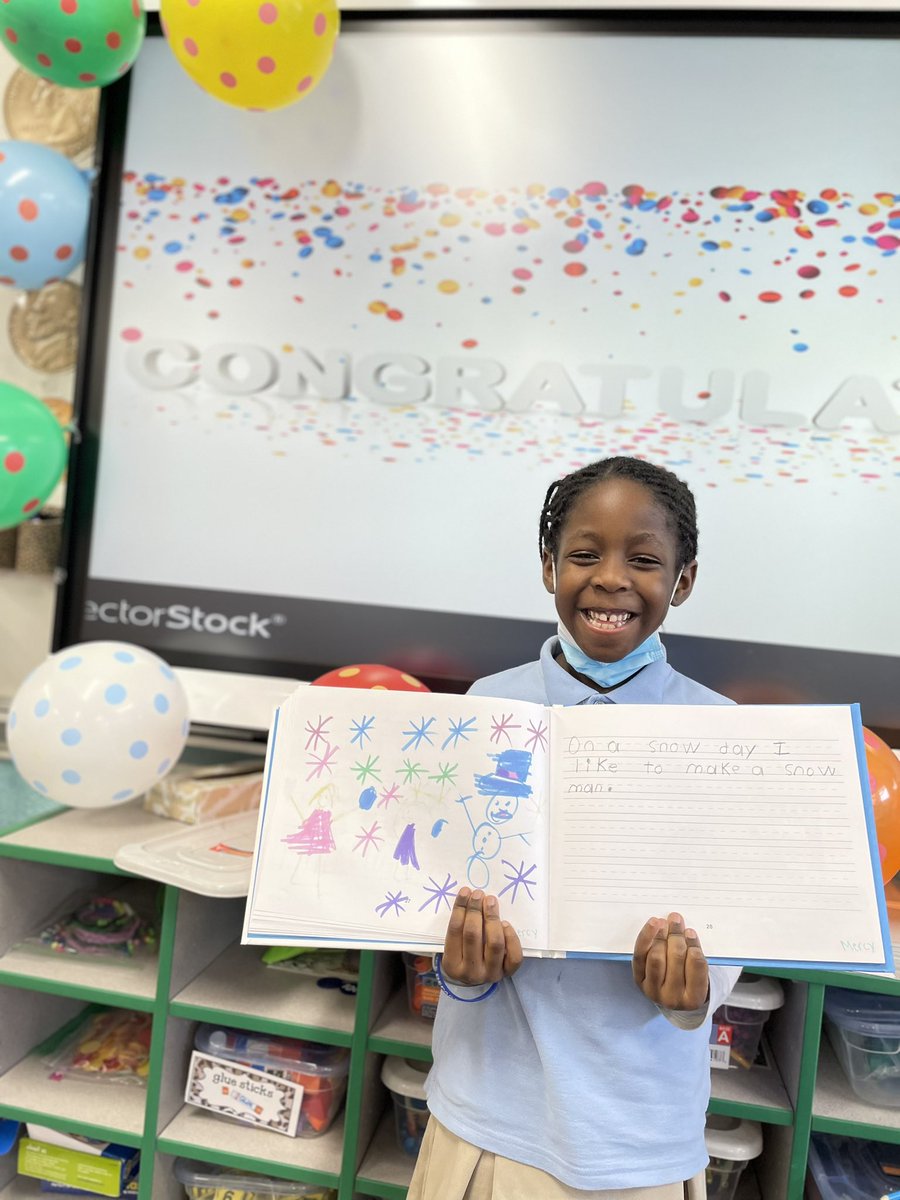 CONGRATULA
ectorStock®
On a snow day I
like to make a snow
man.
20
Mercy
glue sticks
A